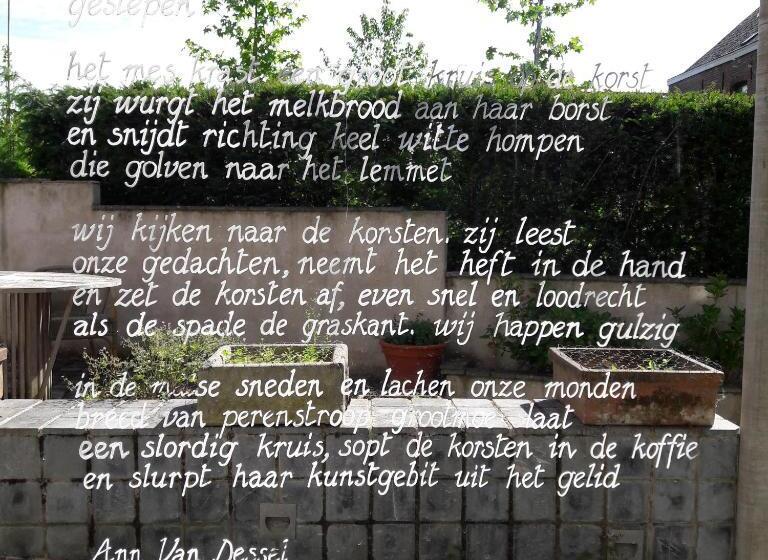 geslepen
het mes krast een groot kruis op de korst
zij wurgt het melkbrood aan haar borst
en snijdt richting keel witte hompen
die golven naar het lemmet
wij kijken naar de korsten. zij leest
onze gedachten, neemt het heft in de hand
en zet de korsten af, even snel en loodrecht
als de spade de graskant. wij happen gulzig
in de malse sneden en lachen onze monden
breed van perenstroop grootmoe laat
een slordig kruis, sopt de korsten in de koffie
en slurpt haar kunstgebit uit het gelid
Ann Van Dessel